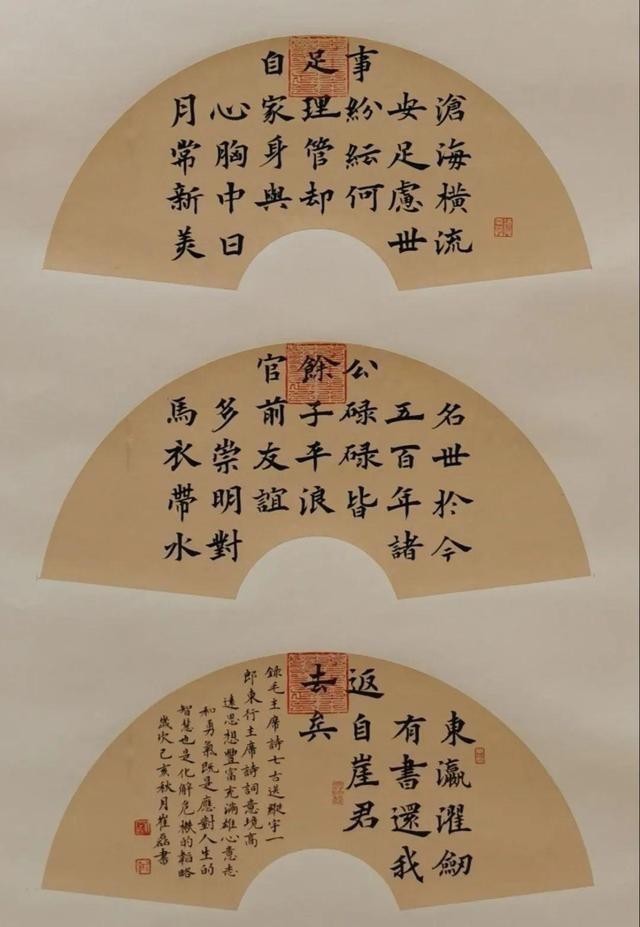 滄海橫流
安足慮世
事紛紜何
足理管却
自家身與
心胸中日
月常新美
名世於今
五百年諸
公碌碌皆
餘子平浪
官前友誼
多崇明對
馬衣帶水
東瀛濯劒
有書還我
返自崖君
去矣
錄毛主席詩七古送縱宇一
郎東行主席詩詞意境高
遠思想豐富充滿雄心意志
和勇氣既是應對人生的
智慧也是化解危機的韜略
歲次己亥秋月崔磊書